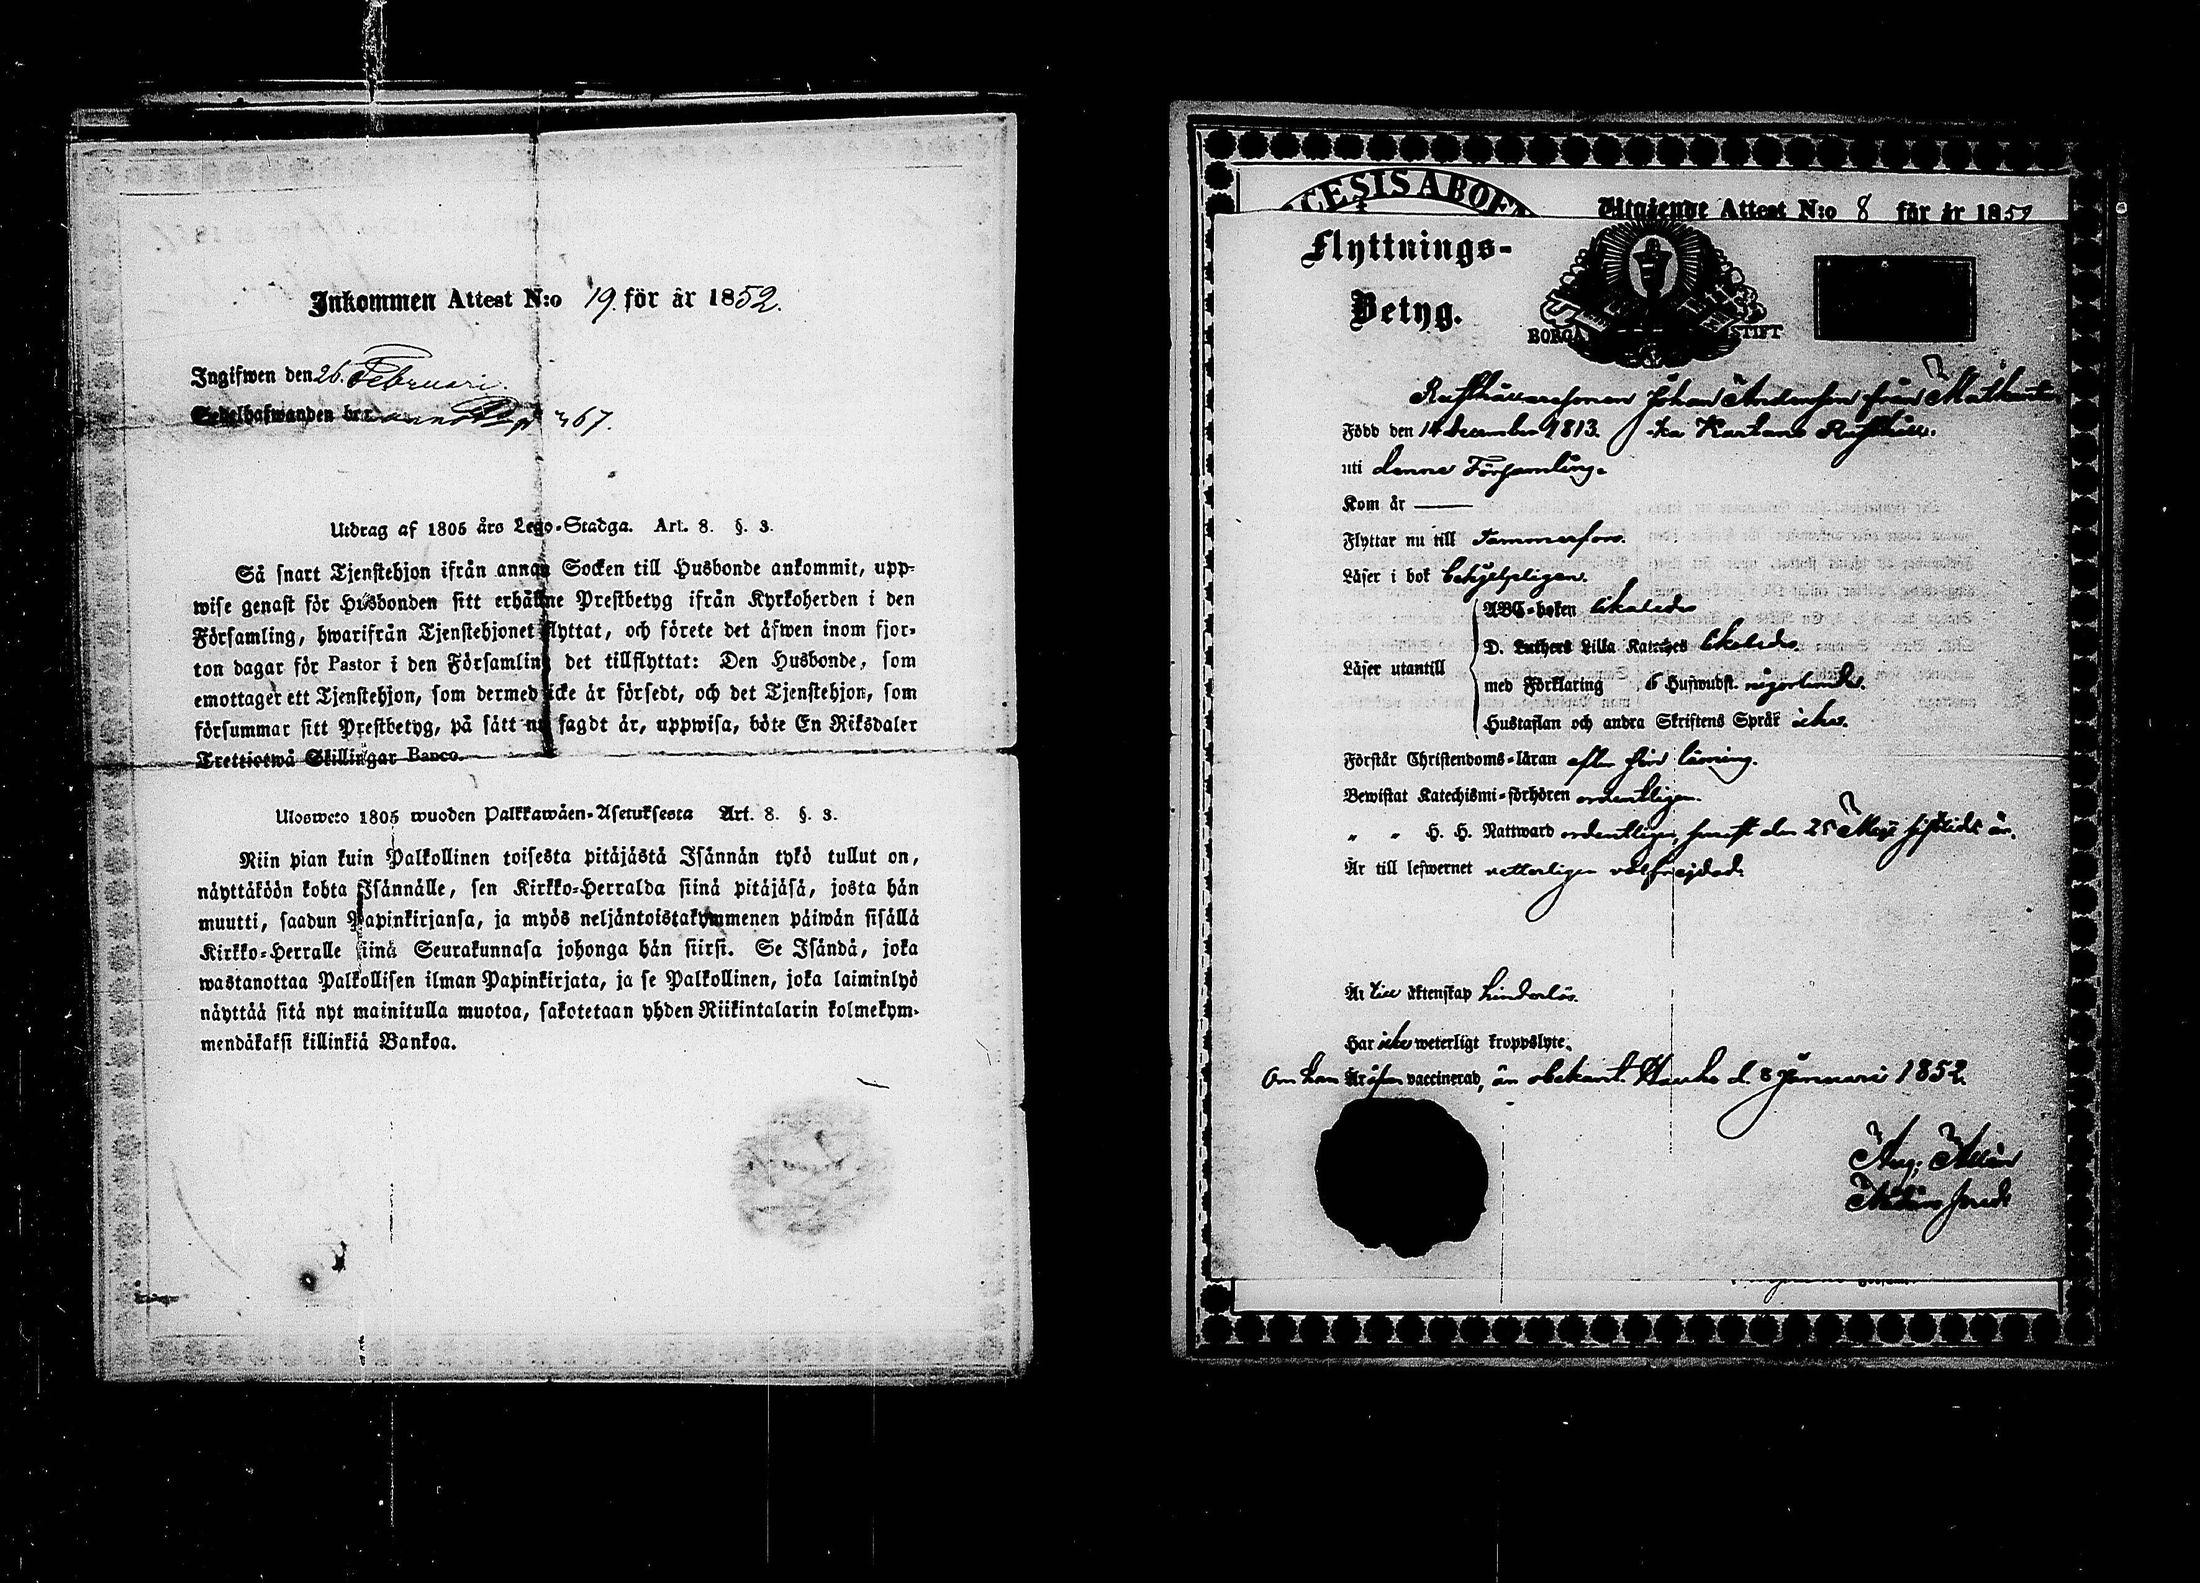 Inkommen Attest N:o 19. för år 1852.
Ingifwen den 26. Februari.
Sedelhafwanden bor
Utdrag af 1805 års Lego-Stadga. Art. 8. §. 3.
Så snart Tjenstehjon ifrån annan Socken till Husbonde ankommit, upp-
wise genast för Husbonden sitt erhållne Prestbetyg ifrån Kyrkoherden i den
Församling, hwarifrån Tjenstehjonet flyttat, och förete det äfwen inom fjor-
ton dagar för Pastor i den Församling det tillflyttat: Den Husbonde, som
emottager ett Tjenstehjon, som dermed icke är försedt, och det Tjenstehjon, som
försummar sitt Prestbetyg, på sätt nu sagdt är, uppwisa, böte En Riksdaler
Trettiotwå Skillingar Banco.
Uloswcto 1805 wuoden Palkkawäen-Asetuksesta Art. 8. §. 3.
Niin pian kuin Palkollinen toisesta pitäjästä Isännän tykö tullut on,
näyttäköön kohta Isännälle, sen Kirkko-Herralda siinä pitäjäsä, josta hän
muutti, saadun Papinkirjansa, ja myös neljäntoistakymmenen päiwän sisällä
Kirkko-Herralle siinä Seurakunnasa johonga hän siirsi. Se Isändä, joka
wastanottaa Palkollisen ilman Papinkirjata, ja se Palkollinen, joka laiminlyö
näyttää sitä nyt mainitulla muotoa, sakotetaan yhden Riikintalarin kolmekym-
mendäkaksi killinkiä Bankoa.
CESIS ABOE
Utgående Attest N:o 8 för år 1852
Flyttnings-
Betyg.
BORGÅ STIFT
Rusthållaresonen Johan Andersson från
Född den 14 december 1813. Kartano Rusthåll.
uti denne Församling.
Kom år ——
Flyttar nu till Tammerfors.
Läser i bok behjelpligen.
ABC-boken
D. Luthers Lilla Kateches
Läser utantill
med Förklaring 6 Hufwudst. någorlunda.
Hustaflan och andra Skriftens Språk icke.
Förstår Christendoms-läran efter sin läsning.
Bewistat Katechismi-förhören ordentligen.
„ „ H. H. Nattward ordentligen, senast den 25 Maji sistlidet år.
Är till lefwernet wetterligen välfrejdad.
Är till äktenskap hinderlös.
Har icke weterligt kroppslyte.
Om han Är äfven vaccinerad, är obekant. d. 8 Januari 1852.
Aug: